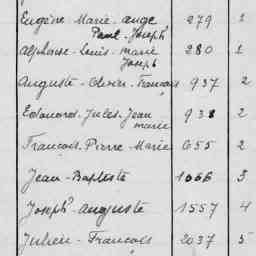 Eugène Marie-ange 279 1
Paul-Joseph
Alphonse-Louis-marie 280 1
Joseph
Auguste-Olivier-François 937 2
Edouard-Jules-Jean 938 2
marie
François-Pierre-Marie 655 2
Jean-Baptiste 1066 3
Joseph-auguste 1557 4
Julien-François 2037 5